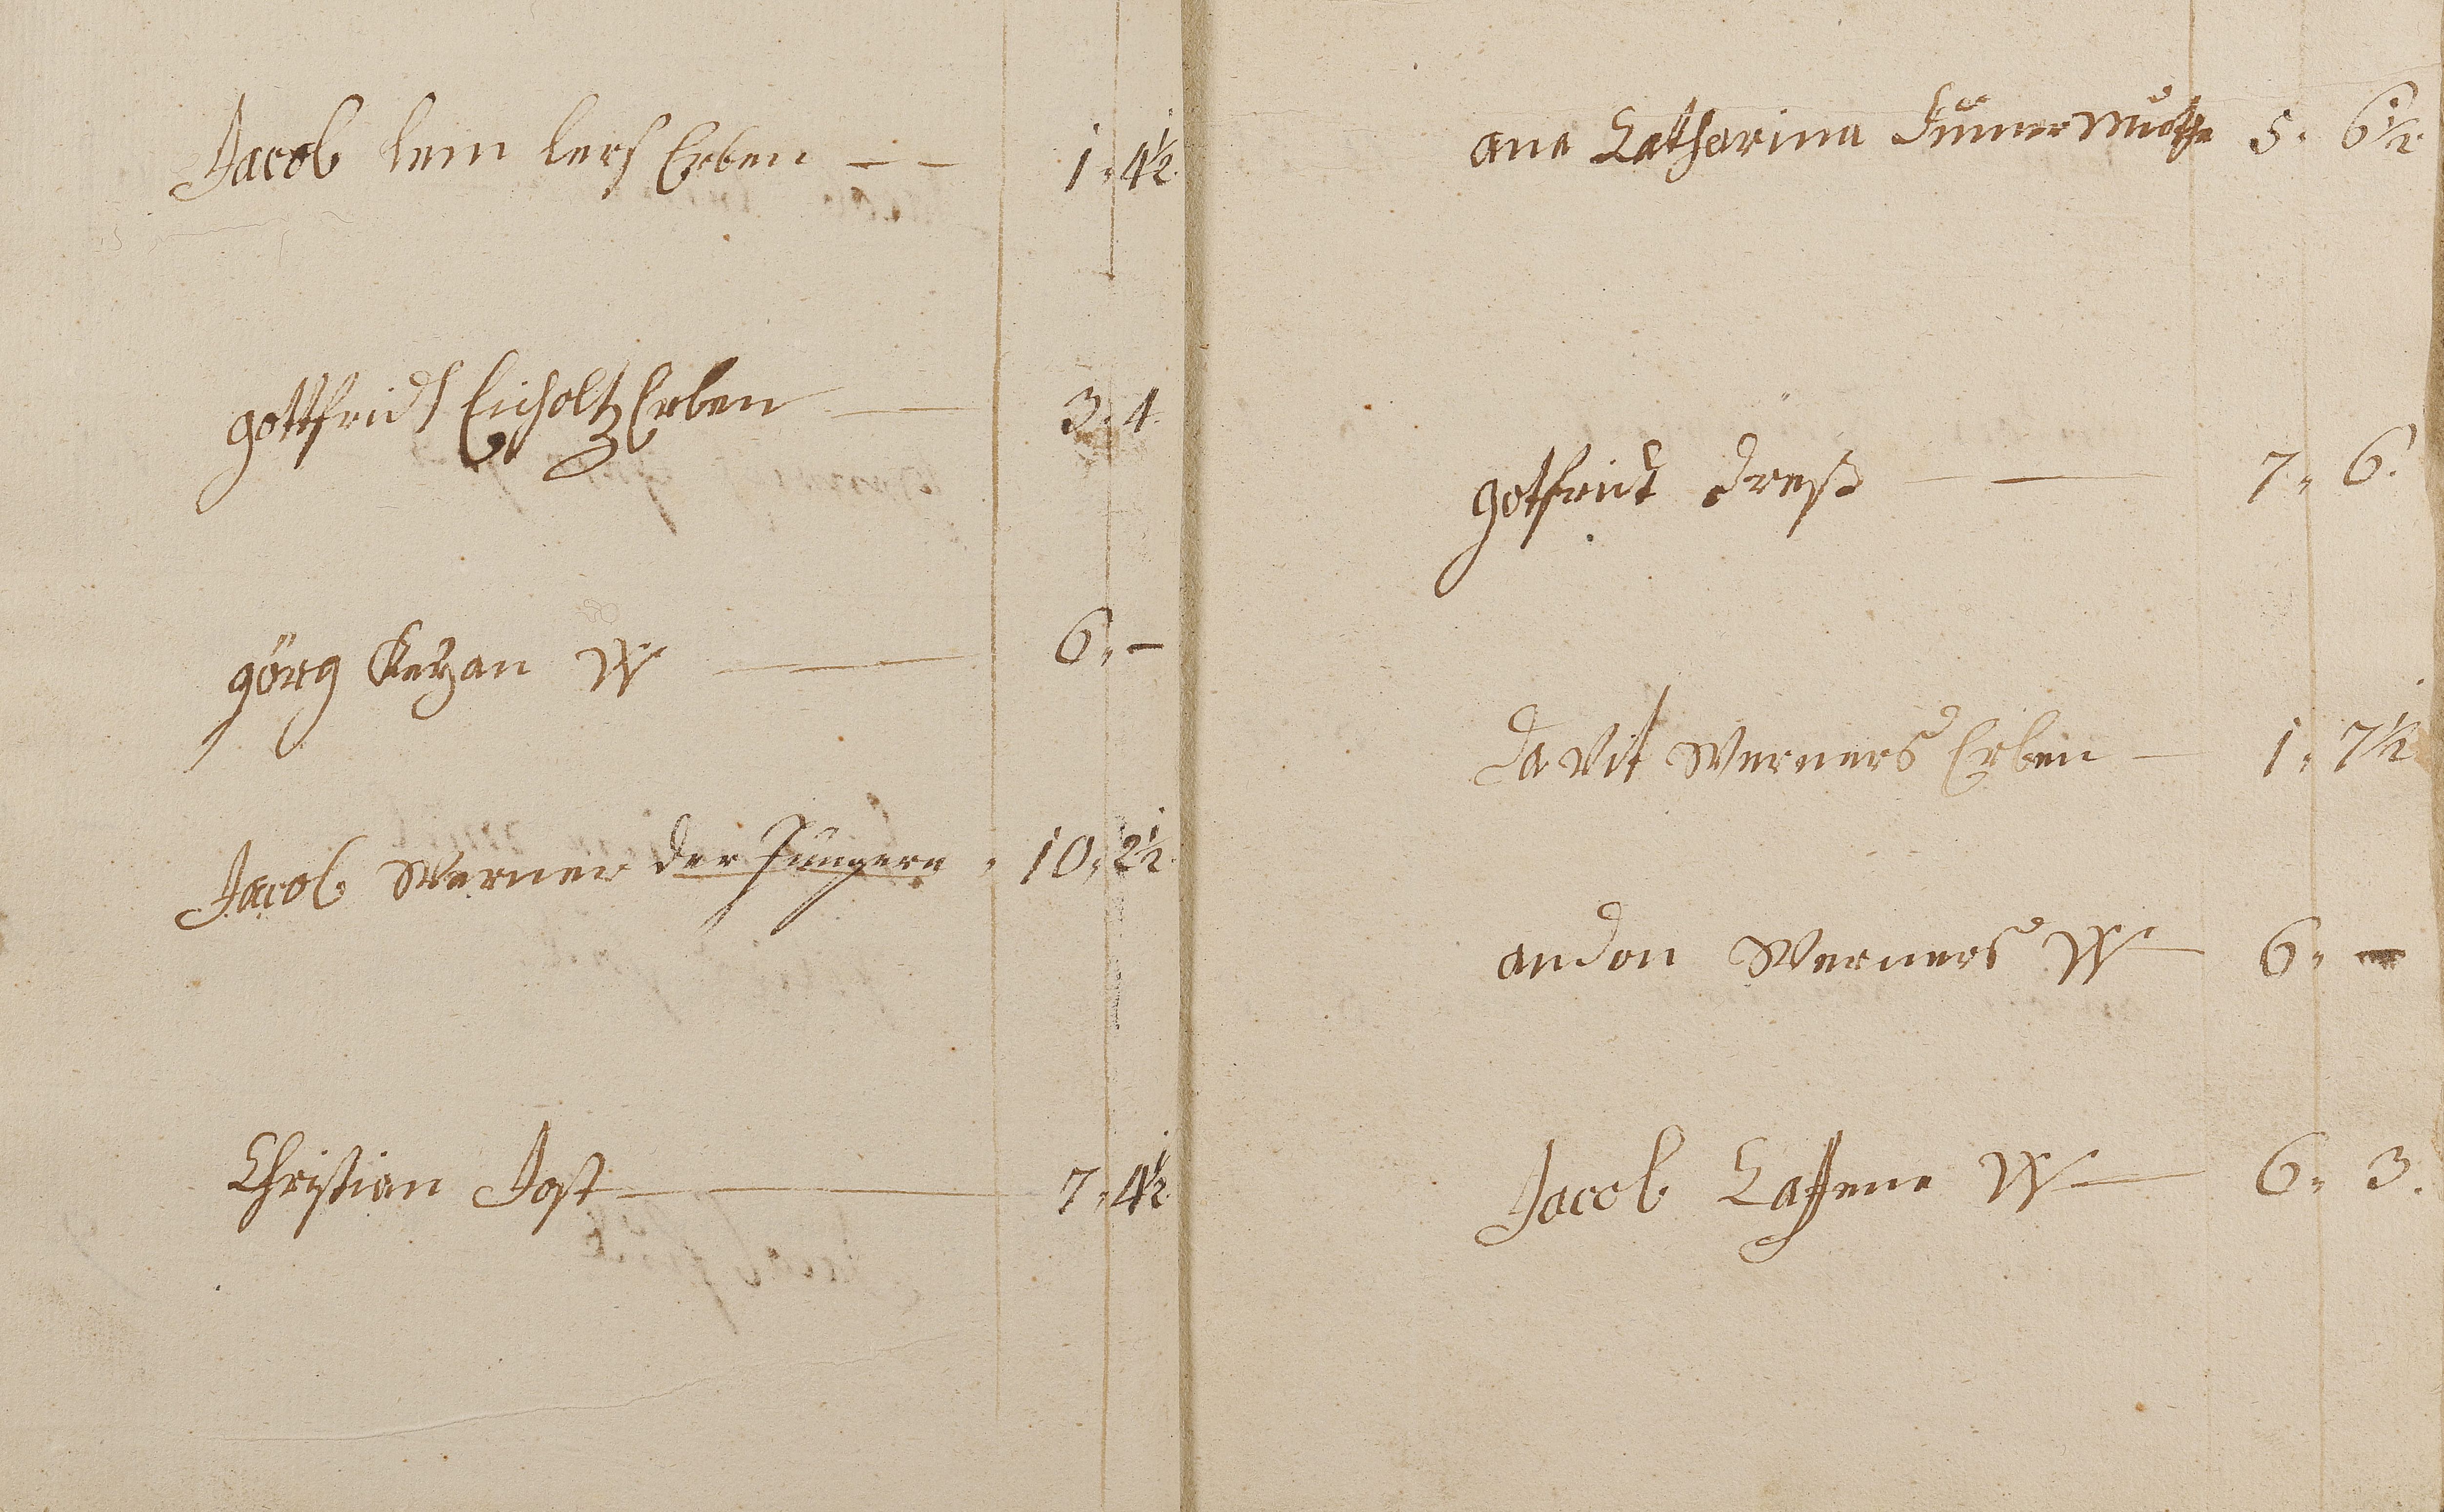 Jacob lem lers Erben — — 1 " 4½
gottfridt Eicholtz Erben — 3 " 4
görg Keyan W — 6 " —
Jacob Werner der Jüngere " 10 " 2½
Christian Jost — 7 " 4½
ana Catharina 5 " 6½
gotfridt dreß — — 7 " 6.
davit Werners Erben — 1 " 7½
andon Werners W — 6 " —
Jacob W — 6 " 3.